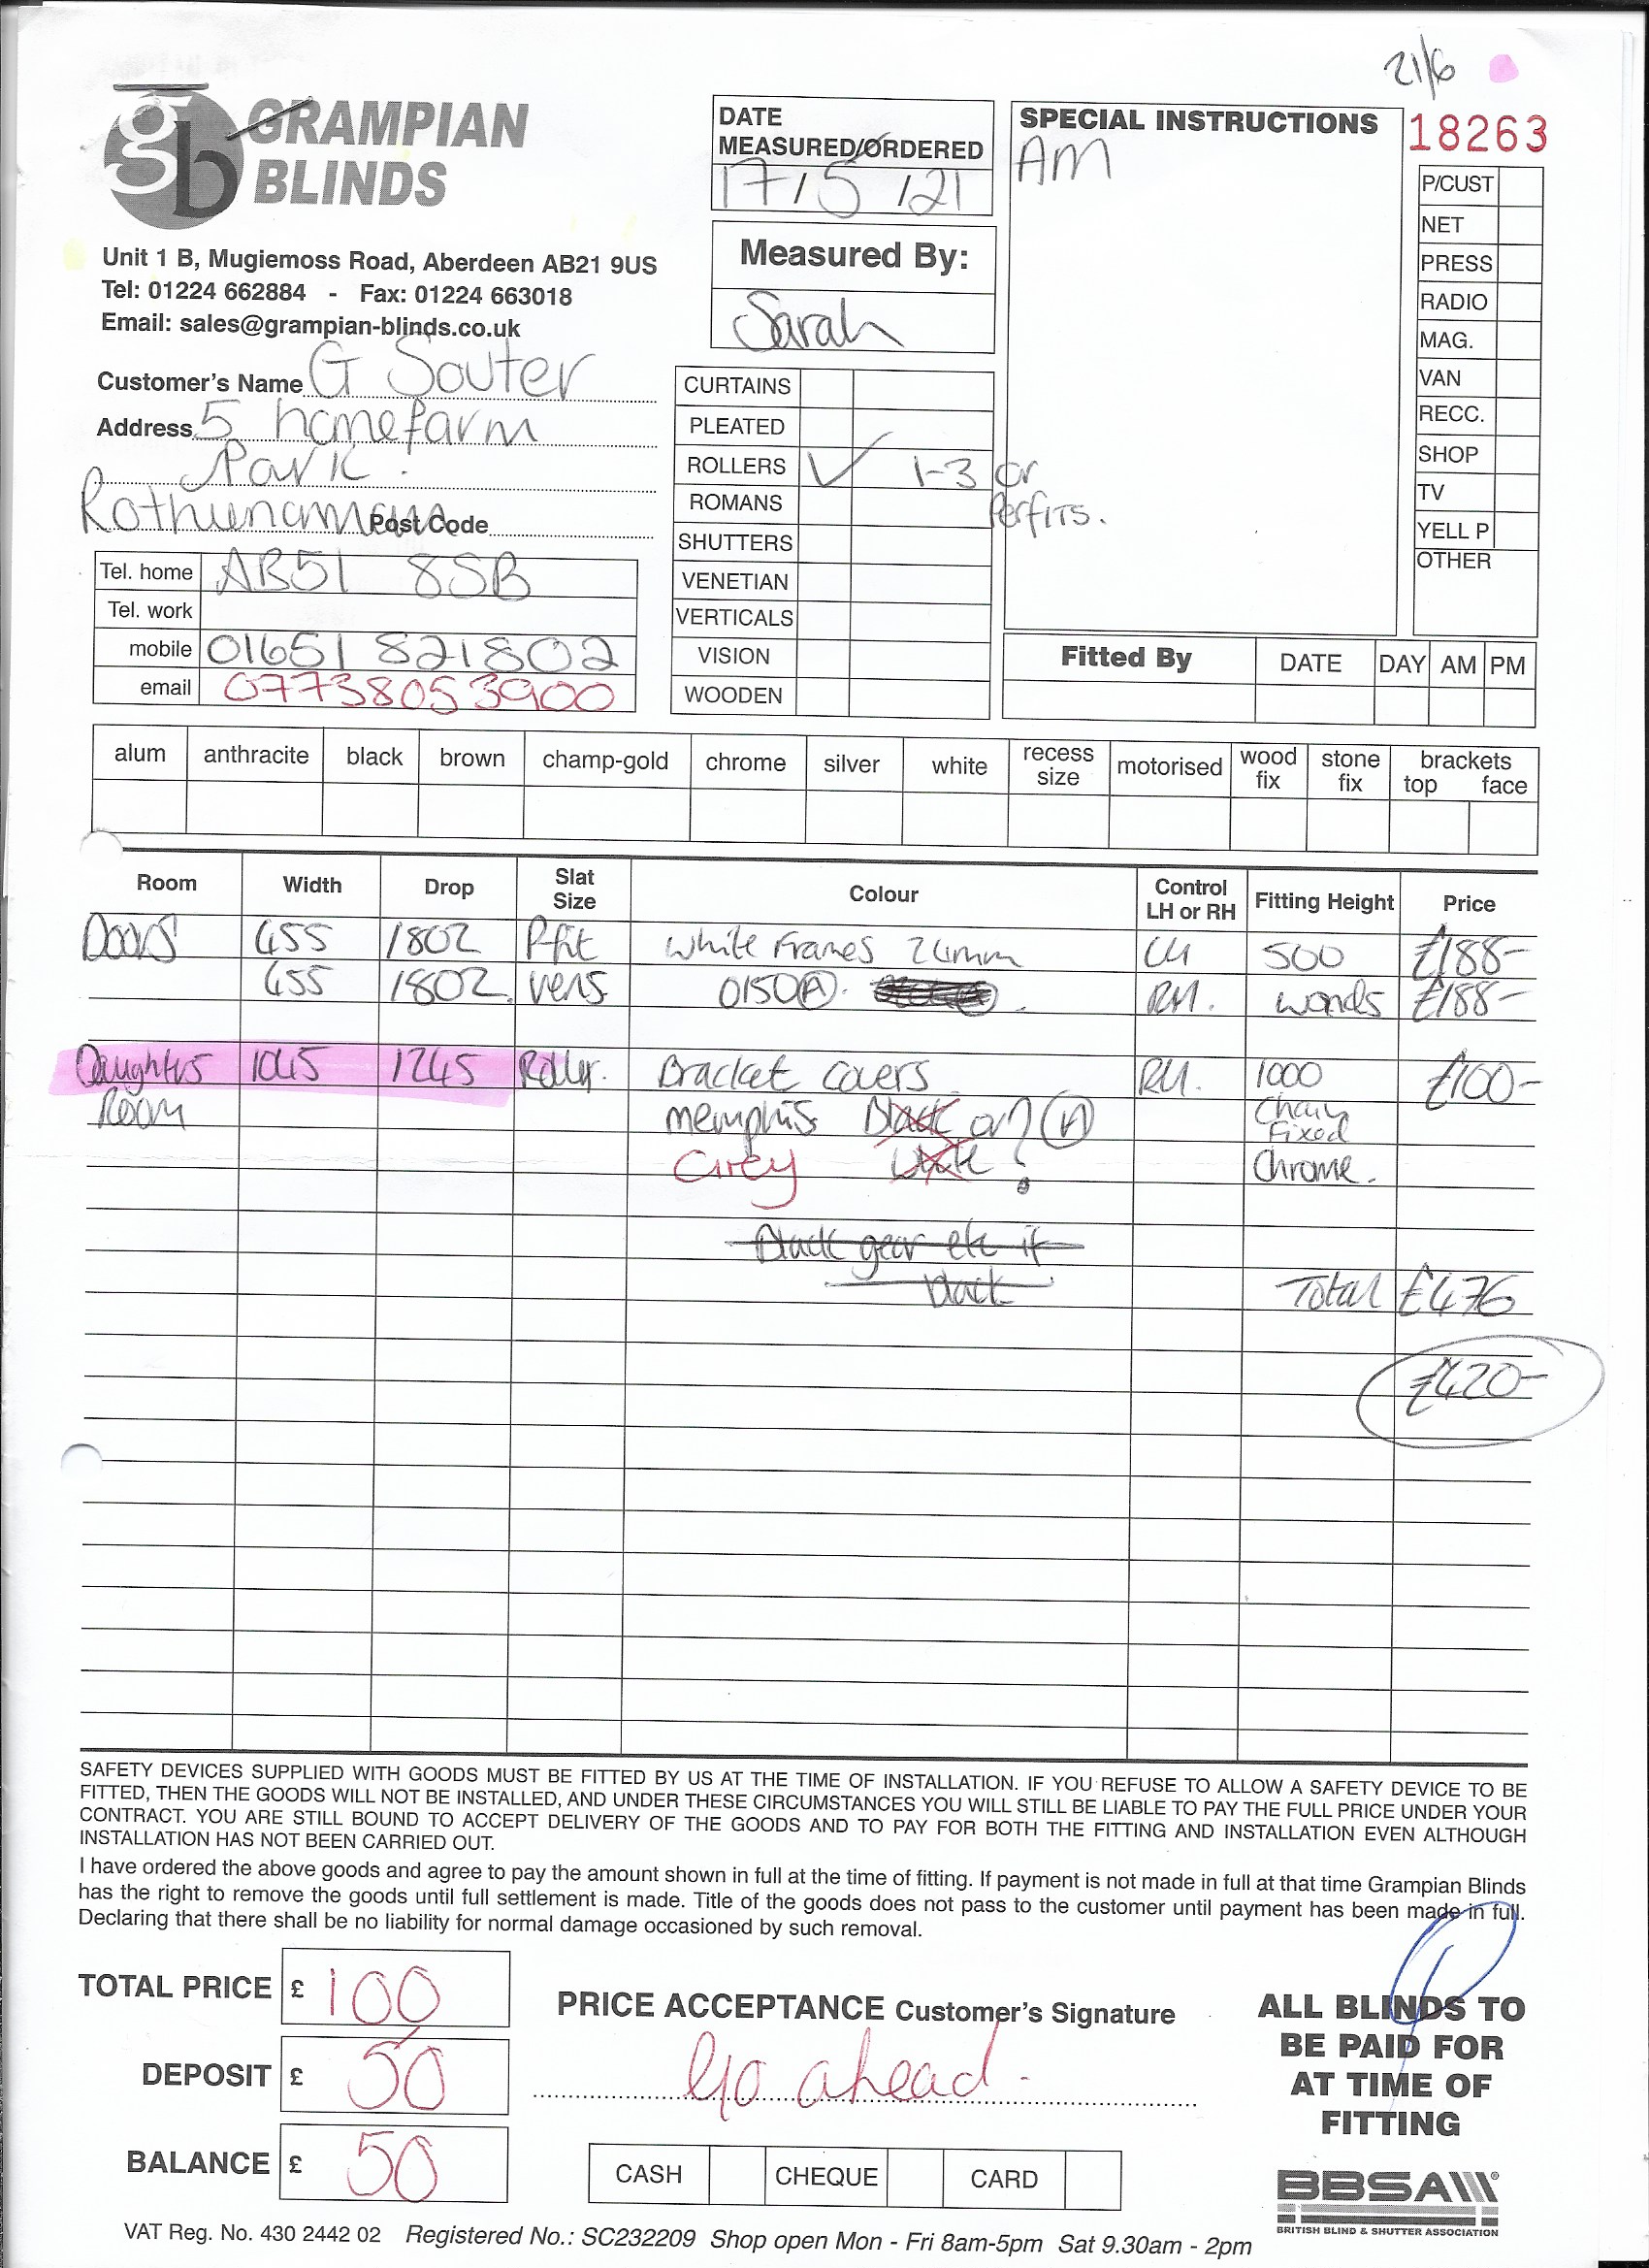 21/6
gb GRAMPIAN BLINDS
Unit 1 B, Mugiemoss Road, Aberdeen AB21 9US
Tel: 01224 662884 - Fax: 01224 663018
Email: sales@grampian-blinds.co.uk
Customer's Name G Souter
Address 5 homefarm
Park.
Post Code
Tel. home AB51 8SB
Tel. work
mobile 01651 821802
email 07738053900
DATE
MEASURED/ORDERED
17/5/21
Measured By:
Sarah
CURTAINS
PLEATED
ROLLERS ✓ 1-3 or
Perfits.
ROMANS
SHUTTERS
VENETIAN
VERTICALS
VISION
WOODEN
SPECIAL INSTRUCTIONS
AM
18263
P/CUST
NET
PRESS
RADIO
MAG.
VAN
RECC.
SHOP
TV
YELL P
OTHER
Fitted By DATE DAY AM PM
alum anthracite black brown champ-gold chrome silver white recess size motorised wood fix stone fix brackets top face
Room Width Drop Slat Size Colour Control LH or RH Fitting Height Price
Doors 455 1802 Pfit White Frames 24mm LH 500 £188-
455 1802 vens 0150(A). RH. wands £188-
Daughters 1045 1245 Roller. Bracket Covers RH. 1000 £100-
Room memphis Black or? (A) Chain Fixed
Grey White ? Chrome.
Black gear etc if
black
Total £476
£420-
SAFETY DEVICES SUPPLIED WITH GOODS MUST BE FITTED BY US AT THE TIME OF INSTALLATION. IF YOU REFUSE TO ALLOW A SAFETY DEVICE TO BE
FITTED, THEN THE GOODS WILL NOT BE INSTALLED, AND UNDER THESE CIRCUMSTANCES YOU WILL STILL BE LIABLE TO PAY THE FULL PRICE UNDER YOUR
CONTRACT. YOU ARE STILL BOUND TO ACCEPT DELIVERY OF THE GOODS AND TO PAY FOR BOTH THE FITTING AND INSTALLATION EVEN ALTHOUGH
INSTALLATION HAS NOT BEEN CARRIED OUT.
I have ordered the above goods and agree to pay the amount shown in full at the time of fitting. If payment is not made in full at that time Grampian Blinds
has the right to remove the goods until full settlement is made. Title of the goods does not pass to the customer until payment has been made in full.
Declaring that there shall be no liability for normal damage occasioned by such removal.
TOTAL PRICE £ 100
DEPOSIT £ 50
BALANCE £ 50
PRICE ACCEPTANCE Customer's Signature
Go ahead.
CASH CHEQUE CARD
ALL BLINDS TO
BE PAID FOR
AT TIME OF
FITTING
BBSA
BRITISH BLIND & SHUTTER ASSOCIATION
VAT Reg. No. 430 2442 02 Registered No.: SC232209 Shop open Mon - Fri 8am-5pm Sat 9.30am - 2pm